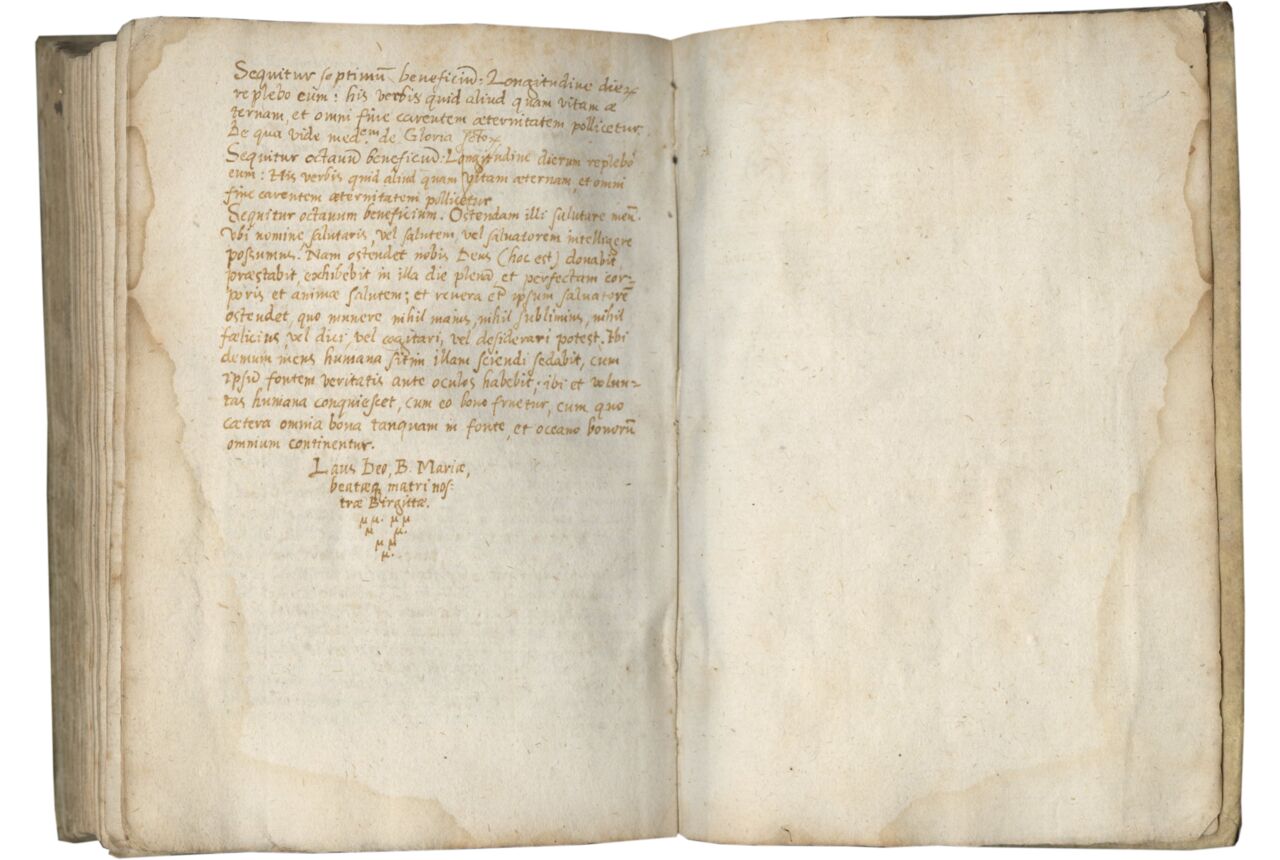 Sequitur septimū beneficiū: Longitudine dieꝝ
replebo eūm: his verbis quid aliud quam vitam æ
ternam, et omni fine carentem æternitatem pollicetur.
De qua vide med.em de Gloria
Sequitur octauū beneficiū: Longitudine dierum replebo
eum: His verbis quid aliud quam vitam æternam, et omni
fine carentem æternitatem pollicetur
Sequitur octauum beneficium. Ostendam illi salutare meū.
Vbi nomine salutaris, vel salutem, vel salvatorem intelligere
possumus. Nam ostendet nobis Deus (hoc est) donabit
præstabit, exhibebit in illa die plenā et perfectam cor-
poris et animæ salutem; et revera et ipsum salvatorē
ostendet, quo munere nihil maius, nihil sublimius, nihil
fœlicius, vel dici, vel cogitari, vel desiderari potest. Ibi
demum mens humana sitim illam sciendi sedabit, cum
ipsū fontem veritatis ante oculos habebit; ibi et volun-
tas humana conquiescet, cum eo bono fruetur, cum quo
cætera omnia bona tanquam in fonte, et oceano bonorū
omnium continentur.
Laus Deo, B. Mariæ,
beatæq matri nos:
træ Birgittæ.
µµ. µµ
µ µ.
µµ.
µ.